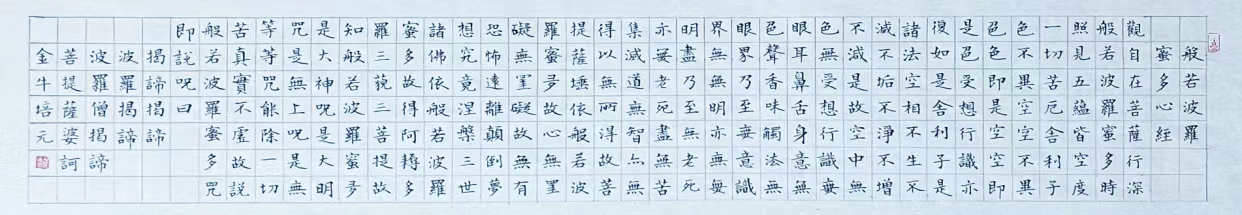 般若波羅
蜜多心經
觀自在菩薩行深
般若波羅蜜多時
照見五蘊皆空度
一切苦厄舍利子
色不異空空不異
色色即是空空即
是色受想行識亦
復如是舍利子是
諸法空相不生不
滅不垢不淨不增
不減是故空中無
色無受想行識無
眼耳鼻舌身意無
色聲香味觸法無
眼界乃至無意識
界無無明亦無無
明盡乃至無老死
亦無老死盡無苦
集滅道無智亦無
得以無所得故菩
提薩埵依般若波
羅蜜多故心無罣
礙無罣礙故無有
恐怖遠離顛倒夢
想究竟涅槃三世
諸佛依般若波羅
蜜多故得阿耨多
羅三藐三菩提故
知般若波羅蜜多
是大神呪是大明
咒是無上呪是無
等等咒能除一切
苦真實不虛故說
般若波羅蜜多咒
即說呪曰
揭諦揭諦
波羅揭諦
波羅僧揭諦
菩提薩婆訶
金牛培元